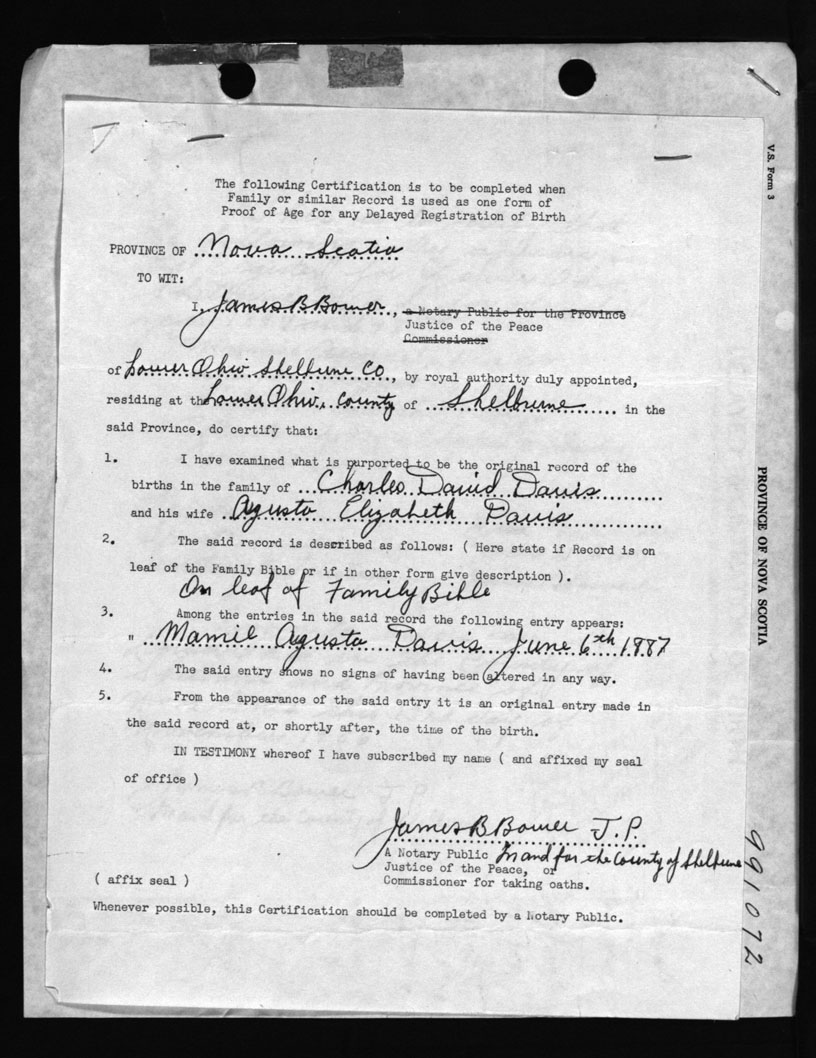 The following Certification is to be completed when
Family or similar Record is used as one form of
Proof of Age for any Delayed Registration of Birth
PROVINCE OF Nova Scotia
TO WIT:
I, James B Bower, a Notary Public for the Province
Justice of the Peace
Commissioner
of Lower Ohio Shelburne Co, by royal authority duly appointed,
residing at the Lower Ohio, County of Shelburne in the
said Province, do certify that:
1. I have examined what is purported to be the original record of the
births in the family of Charles David Davis
and his wife Agusta Elizabeth Davis
2. The said record is described as follows: ( Here state if Record is on
leaf of the Family Bible or if in other form give description ).
On leaf of Family Bible
3. Among the entries in the said record the following entry appears:
" Mamil Agusta Davis June 6th 1887
4. The said entry shows no signs of having been altered in any way.
5. From the appearance of the said entry it is an original entry made in
the said record at, or shortly after, the time of the birth.
IN TESTIMONY whereof I have subscribed my name ( and affixed my seal
of office )
James B Bower J.P.
A Notary Public In and for the County of Shelburne
Justice of the Peace, or
Commissioner for taking oaths.
( affix seal )
Whenever possible, this Certification should be completed by a Notary Public.
V.S. Form 3
PROVINCE OF NOVA SCOTIA
991072